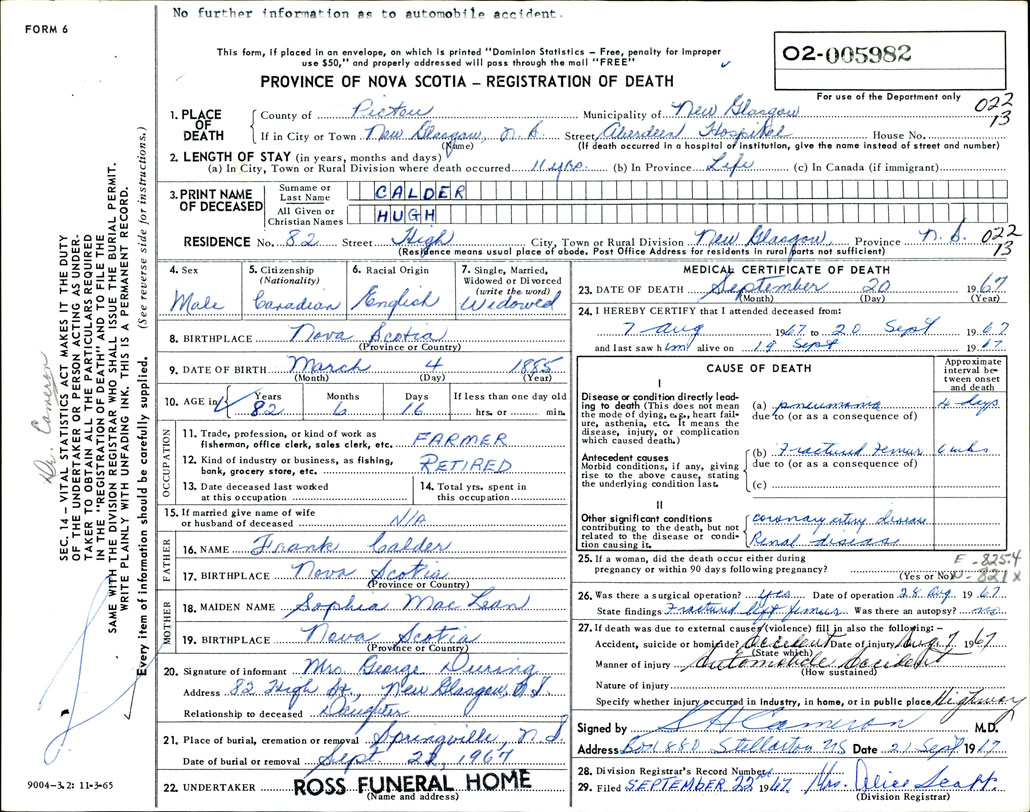 No further information as to automobile accident.
FORM 6
This form, if placed in an envelope, on which is printed "Dominion Statistics – Free, penalty for improper
use $50," and properly addressed will pass through the mail "FREE"
O2-005982
PROVINCE OF NOVA SCOTIA – REGISTRATION OF DEATH
For use of the Department only
022
13
1. PLACE OF DEATH
County of Pictou Municipality of New Glasgow
If in City or Town New Glasgow, N.S. Street Aberdeen Hospital House No.
(Name) (If death occurred in a hospital or institution, give the name instead of street and number)
2. LENGTH OF STAY (in years, months and days)
(a) In City, Town or Rural Division where death occurred 11 yrs. (b) In Province Life (c) In Canada (if immigrant)
3. PRINT NAME OF DECEASED
Surname or Last Name CALDER
All Given or Christian Names HUGH
RESIDENCE No. 82 Street High City, Town or Rural Division New Glasgow, Province N.S. 022
13
(Residence means usual place of abode. Post Office Address for residents in rural parts not sufficient)
4. Sex
Male
5. Citizenship
(Nationality)
Canadian
6. Racial Origin
English
7. Single, Married,
Widowed or Divorced
(write the word)
Widowed
8. BIRTHPLACE Nova Scotia
(Province or Country)
9. DATE OF BIRTH March 4 1885
(Month) (Day) (Year)
10. AGE in
Years Months Days If less than one day old
82 6 16 hrs. or min.
OCCUPATION
11. Trade, profession, or kind of work as
fisherman, office clerk, sales clerk, etc. FARMER
12. Kind of industry or business, as fishing,
bank, grocery store, etc. RETIRED
13. Date deceased last worked
at this occupation
14. Total yrs. spent in
this occupation
15. If married give name of wife
or husband of deceased N/A
FATHER
16. NAME Frank Calder
17. BIRTHPLACE Nova Scotia
(Province or Country)
MOTHER
18. MAIDEN NAME Sophia MacLean
19. BIRTHPLACE Nova Scotia
(Province or Country)
20. Signature of informant Mrs. George During
Address 82 High St., New Glasgow, N.S.
Relationship to deceased Daughter
21. Place of burial, cremation or removal Springville, N.S.
Date of burial or removal Sept. 22, 1967
22. UNDERTAKER ROSS FUNERAL HOME
(Name and address)
MEDICAL CERTIFICATE OF DEATH
23. DATE OF DEATH September 20 1967
(Month) (Day) (Year)
24. I HEREBY CERTIFY that I attended deceased from:
7 Aug 1967 to 20 Sept 1967
and last saw him alive on 19 Sept 1967
CAUSE OF DEATH
Approximate
interval be-
tween onset
and death
I
Disease or condition directly lead-
ing to death (This does not mean
the mode of dying, e.g., heart fail-
ure, asthenia, etc. It means the
disease, injury, or complication
which caused death.)
(a) pneumonia 4 days
due to (or as a consequence of)
Antecedent causes
Morbid conditions, if any, giving
rise to the above cause, stating
the underlying condition last.
(b) Fractured femur 6 wks
due to (or as a consequence of)
(c)
II
Other significant conditions
contributing to the death, but not
related to the disease or condi-
tion causing it.
coronary artery disease
Renal disease
25. If a woman, did the death occur either during
pregnancy or within 90 days following pregnancy?
(Yes or No)
E-825.4
N-821 x
26. Was there a surgical operation? yes Date of operation 28 Aug. 1967
State findings Fractured left femur Was there an autopsy? no
27. If death was due to external causes (violence) fill in also the following:–
Accident, suicide or homicide? Accident Date of injury Aug 7 1967
(State which)
Manner of injury Automobile Accident
(How sustained)
Nature of injury
Specify whether injury occurred in industry, in home, or in public place Highway
Signed by S H Cameron M.D.
Address Box 880 Stellarton NS Date 21 Sept 1967
28. Division Registrar's Record Number
29. Filed SEPTEMBER 22nd 1967 Mrs. Alice
(Division Registrar)
Dr. Cameron
SEC. 14 – VITAL STATISTICS ACT MAKES IT THE DUTY
OF THE UNDERTAKER OR PERSON ACTING AS UNDER-
TAKER TO OBTAIN ALL THE PARTICULARS REQUIRED
IN THE "REGISTRATION OF DEATH" AND TO FILE THE
SAME WITH THE DIVISION REGISTRAR WHO SHALL ISSUE THE BURIAL PERMIT.
WRITE PLAINLY WITH UNFADING INK. THIS IS A PERMANENT RECORD.
Every item of information should be carefully supplied. (See reverse side for instructions.)
9004-3.2: 11-3-65